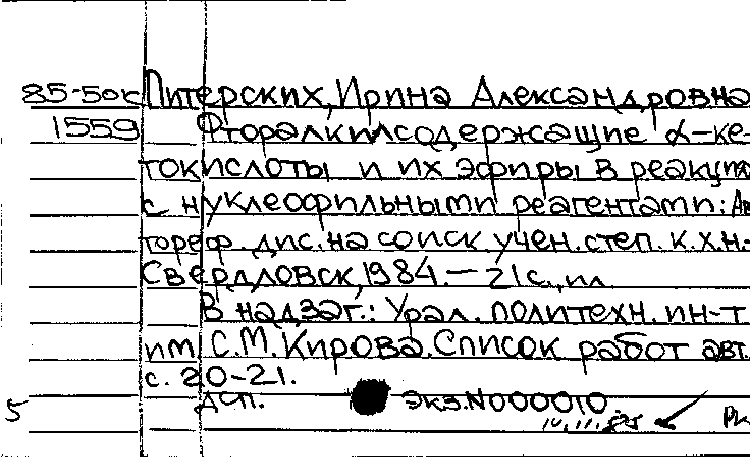 85-5ок Питерских, Ирина Александровна
1559 Фторалкилсодержащие α-ке-
токислоты и их эфиры в реакциях
с нуклеофильными реагентами: Ав
тореф. дис. на соиск. учен. степ. к.х.н.-
Свердловск, 1984. - 21 с., ил
В надзаг.: Урал. политехн. ин-т
им. С.М. Кирова. Список работ авт.
с. 20-21.
5 ДСП. экз. N000010
РК